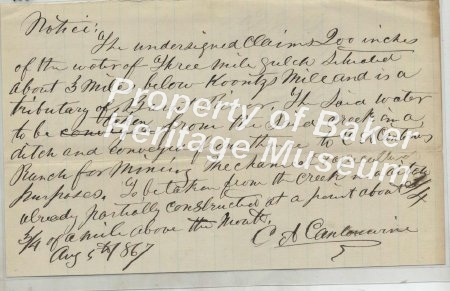 Notice:
The undersigned Claims 200 inches
of the water of Three Mile gulch Situated
about 3 Miles below Koontz Mile and is a
tributary of The Said water
to be taken from the Said creek in a
ditch and conveyed to
Ranch for Mining Mechanical
purposes. To be taken from the Creek
already partially constructed at a point about 3/4
3/4 of a mile above the Mouth.
Aug 5th 1867
C A
Property of Baker
Heritage Museum